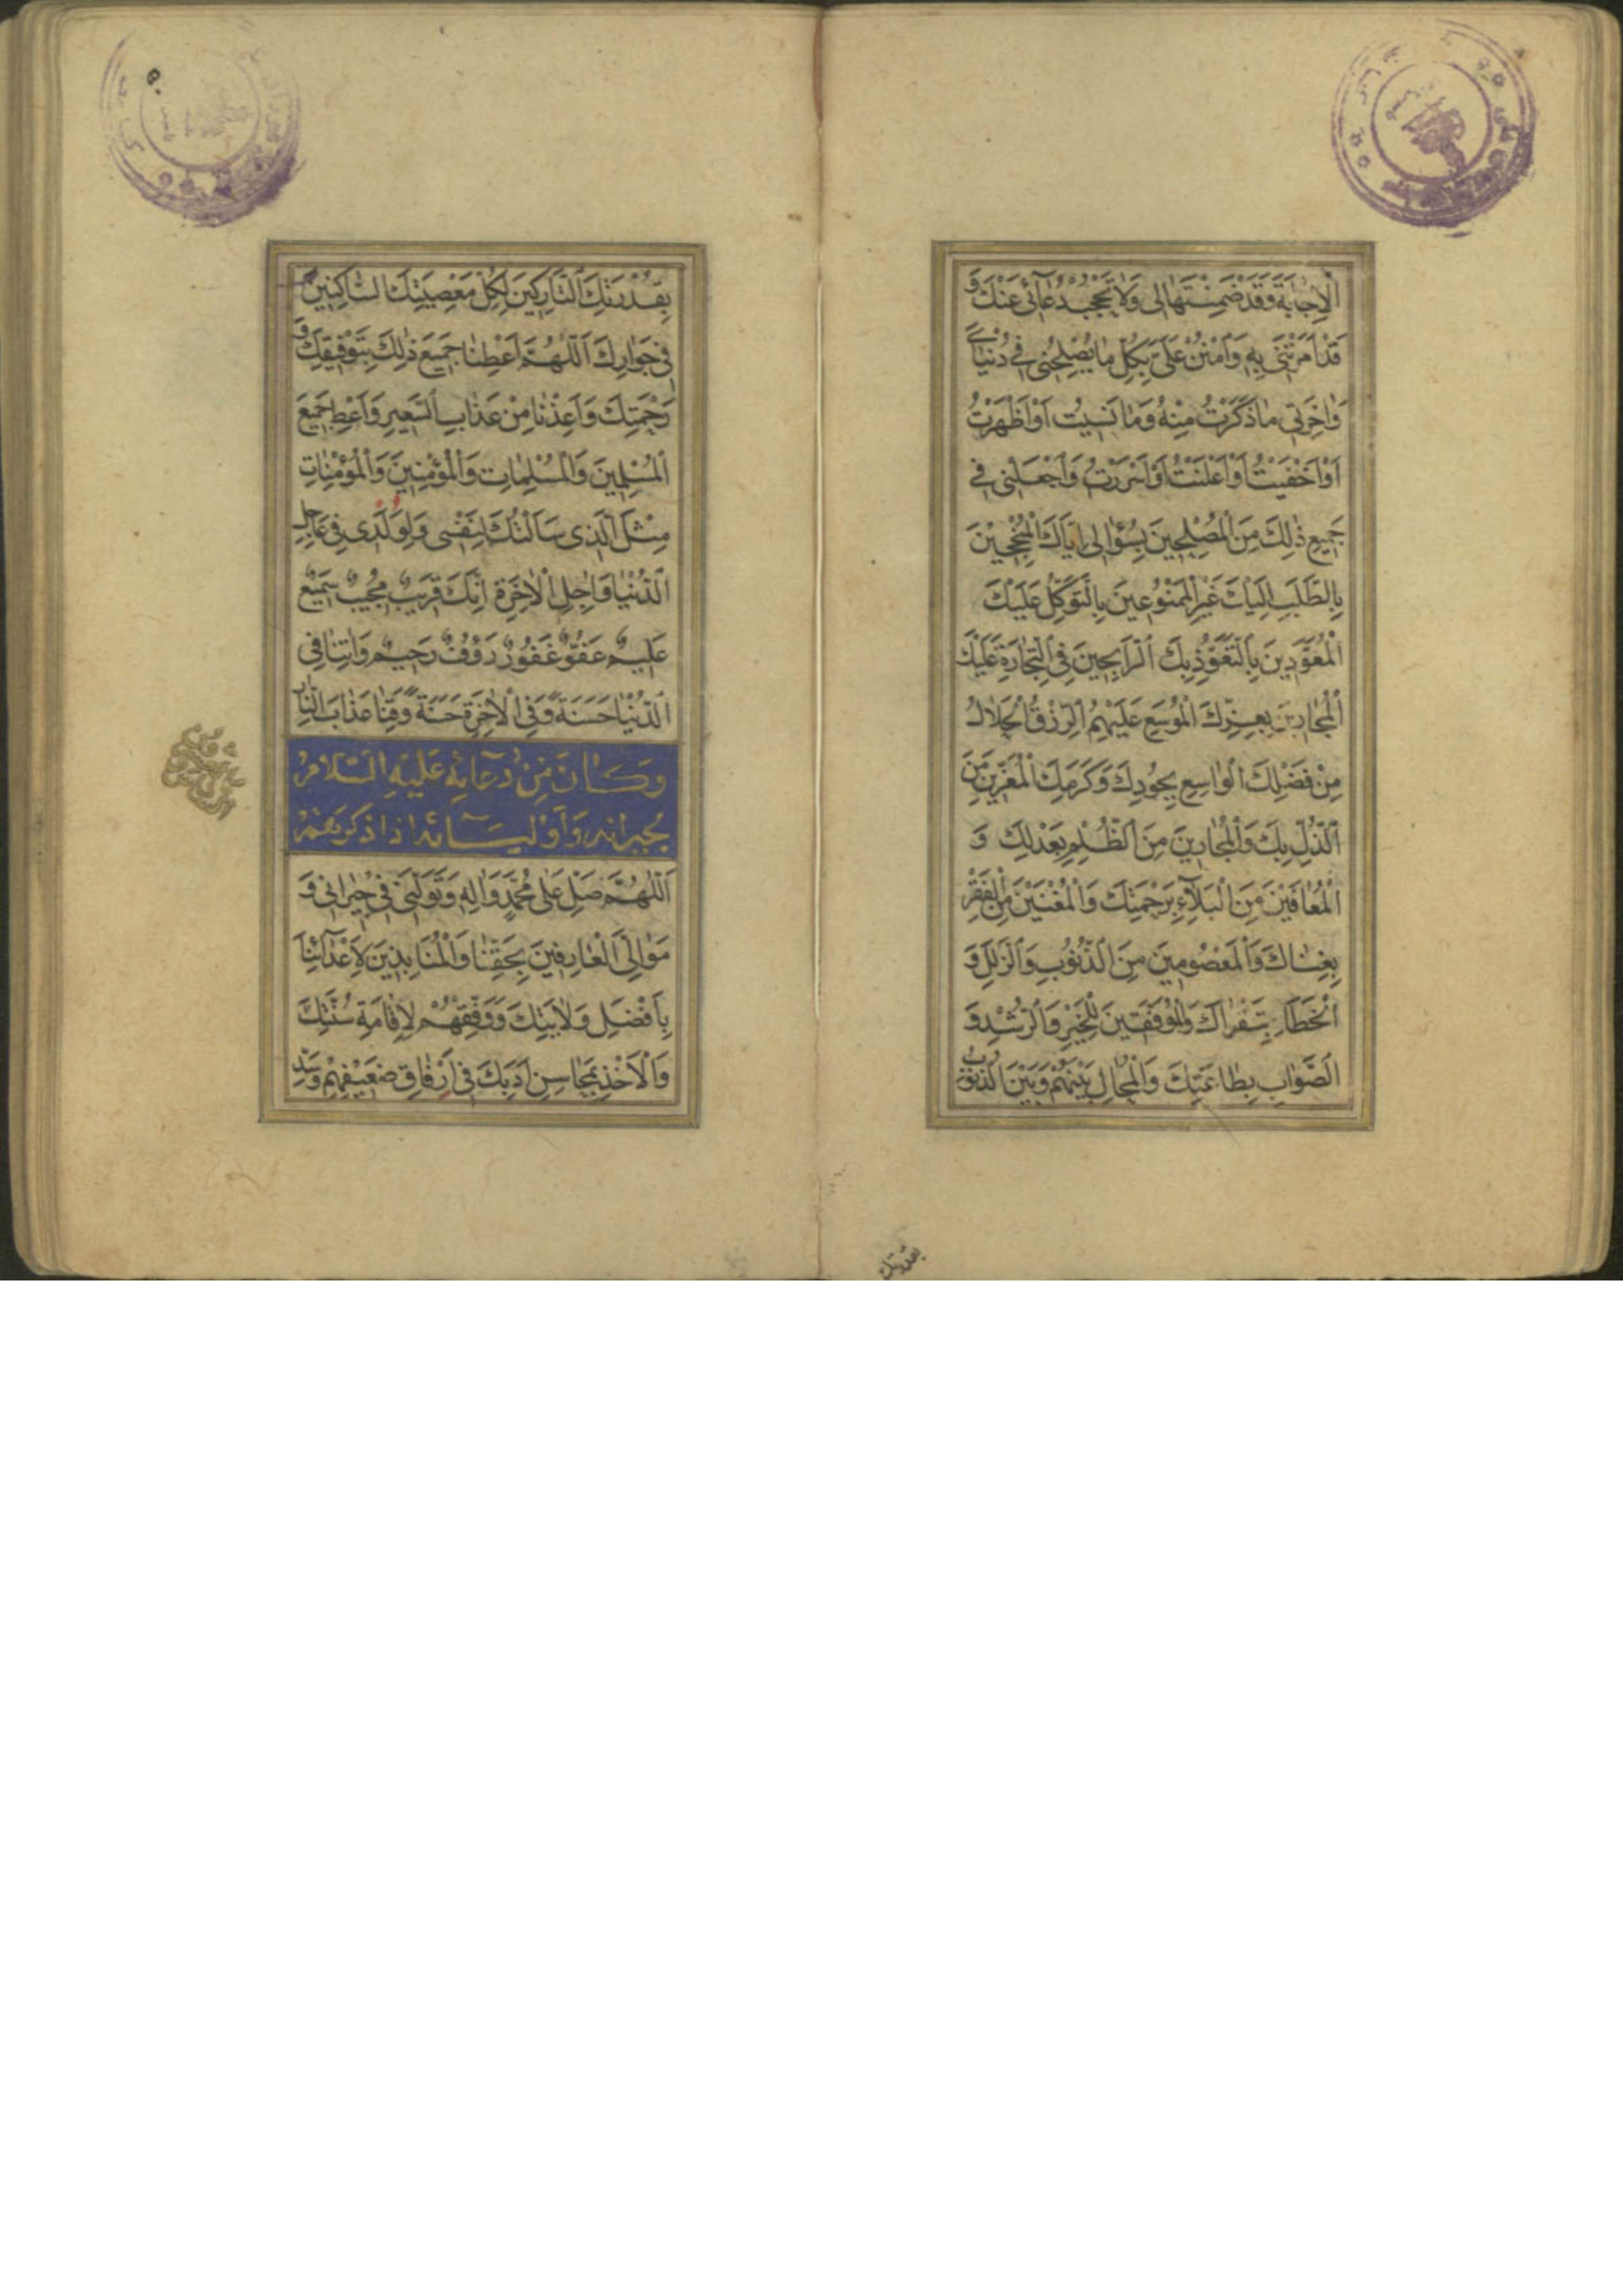 اَلْاِجابَةَ وَقَدْ ضَمِنْتَها لى وَلا تَحْجُبْ دُعآئى عَنْكَ وَ
قَدْ اَمَرْتَنى بِهِ وَامْنُنْ عَلَىَّ بِكُلِّ ما يُصْلِحُنى فى دُنْياىَ
وَاخِرَتى ما ذَكَرْتُ مِنْهُ وَما نَسيتُ اَوْ اَظْهَرْتُ
اَوْ اَخْفَيْتُ اَوْ اَعْلَنْتُ اَوْ اَسْرَرْتُ وَاجْعَلْنى فى
جَميعِ ذٰلِكَ مِنَ الْمُصْلِحينَ بِسُؤالى اِيّاكَ الْمُنْجِحينَ
بِالطَّلَبِ اِلَيْكَ غَيْرِ الْمَمْنُوعينَ بِالتَّوَكُّلِ عَلَيْكَ
الْمُعَوَّدينَ بِالتَّعَوُّذِ بِكَ الرّابِحينَ فِى التِّجارَةِ عَلَيْكَ
الْمُجارينَ بِعِزِّكَ الْمُوسَعِ عَلَيْهِمُ الرِّزْقُ الْحَلالُ
مِنْ فَضْلِكَ الْواسِعِ بِجُودِكَ وَكَرَمِكَ الْمُعَزّينَ مِنَ
الذُّلِّ بِكَ وَالْمُجارينَ مِنَ الظُّلْمِ بِعَدْلِكَ وَ
الْمُعافَيْنَ مِنَ الْبَلآءِ بِرَحْمَتِكَ وَالْمُغْنَيْنَ مِنَ الْفَقْرِ
بِغِناكَ وَالْمَعْصُومينَ مِنَ الذُّنُوبِ وَالزَّلَلِ وَ
الْخَطَاءِ بِتَقْواكَ وَالْمُوَفَّقينَ لِلْخَيْرِ وَالرُّشْدِ وَ
الصَّوابِ بِطاعَتِكَ وَالْمُحالِ بَيْنَهُمْ وَبَيْنَ الذُّنُوبِ
بقدرتك
بِقُدْرَتِكَ التّارِكينَ لِكُلِّ مَعْصِيَتِكَ السّاكِنينَ
فى جِوارِكَ اَللّٰهُمَّ اَعْطِنا جَميعَ ذٰلِكَ بِتَوْفيقِكَ وَ
رَحْمَتِكَ وَاَعِذْنا مِنْ عَذابِ السَّعيرِ وَاَعْطِ جَميعَ
الْمُسْلِمينَ وَالْمُسْلِماتِ وَالْمُؤْمِنينَ وَالْمُؤْمِناتِ
مِثْلَ الَّذى سَاَلْتُكَ لِنَفْسى وَلِوُلْدى فى عاجِلِ
الدُّنْيا وَاجِلِ الْاخِرَةِ اِنَّكَ قَريبٌ مُجيبٌ سَميعٌ
عَليمٌ عَفُوٌّ غَفُورٌ رَؤُفٌ رَحيمٌ وَاتِنا فِى
الدُّنْيا حَسَنَةً وَفِى الْاخِرَةِ حَسَنَةً وَقِنا عَذابَ النّارِ
وَكانَ مِنْ دُعائِهِ عَلَيْهِ السَّلامُ
لِجيرانِهِ وَاَوْلِيآئِهِ اِذا ذَكَرَهُمْ
اَللّٰهُمَّ صَلِّ عَلى مُحَمَّدٍ وَالِهِ وَتَوَلَّنى فى جيرانى وَ
مَوالِىَّ الْعارِفينَ بِحَقِّنا وَالْمُنابِذينَ لِاَعْدآئِنا
بِاَفْضَلِ وَلايَتِكَ وَوَفِّقْهُمْ لِاِقامَةِ سُنَّتِكَ
وَالْاَخْذِ بِمَحاسِنِ اَدَبِكَ فى اِرْفاقِ ضَعيفِهِمْ وَسَدِّ